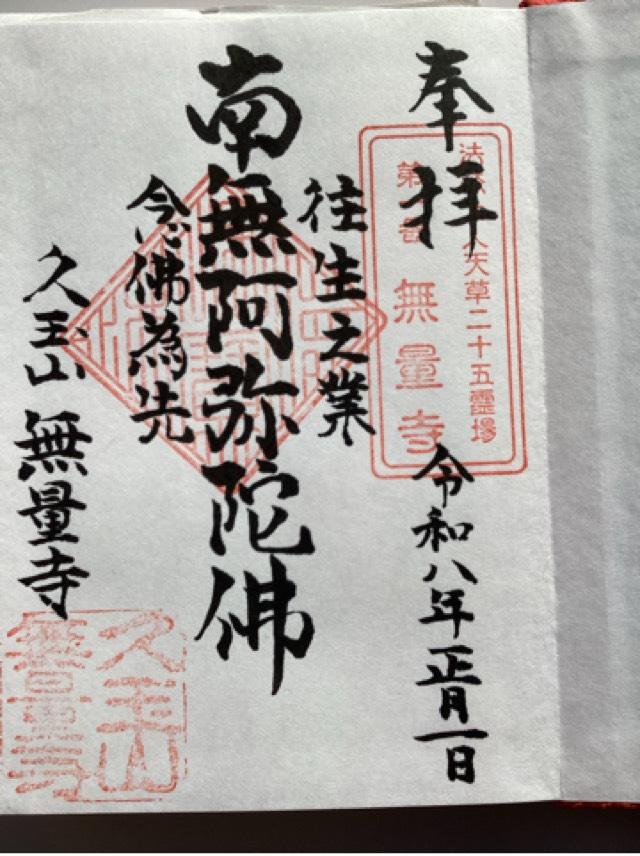 奉拝
天草二十五霊場
第 番 無量寺
令和八年正月一日
往生之業
南無阿弥陀佛
念佛為先
久玉山 無量寺
久玉山
無量寺